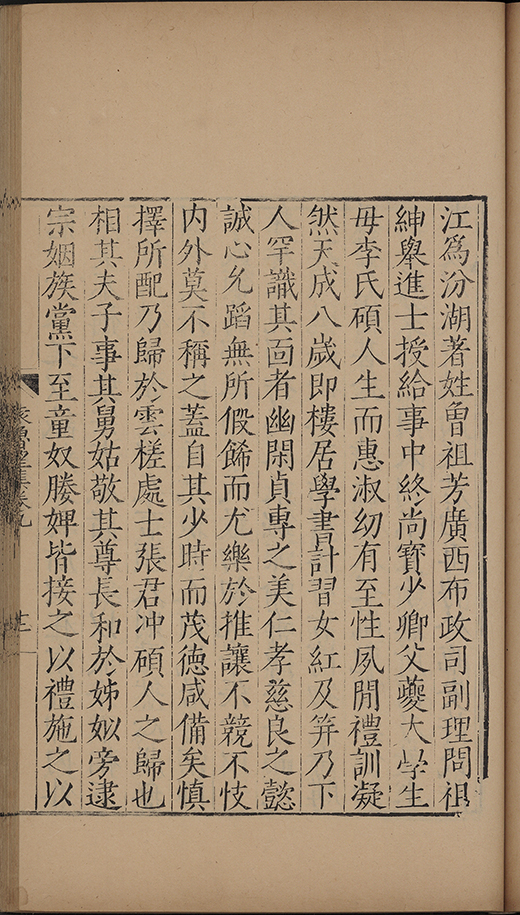 江爲汾湖著姓曾祖芳廣西布政司副理問祖
紳舉進士授給事中終尚寶少卿父夔大學生
母李氏碩人生而惠淑幼有至性夙閑禮訓凝
然天成八歲即樓居學書計習女紅及笄乃下
人罕識其面者幽閑貞專之美仁孝慈良之懿
誠心允蹈無所假餙而尤樂於推讓不競不忮
内外莫不稱之蓋自其少時而茂德咸備矣慎
擇所配乃歸於雲槎處士張君冲碩人之歸也
相其夫子事其舅姑敬其尊長和於姊姒旁逮
宗姻族黨下至童奴媵婢皆接之以禮施之以